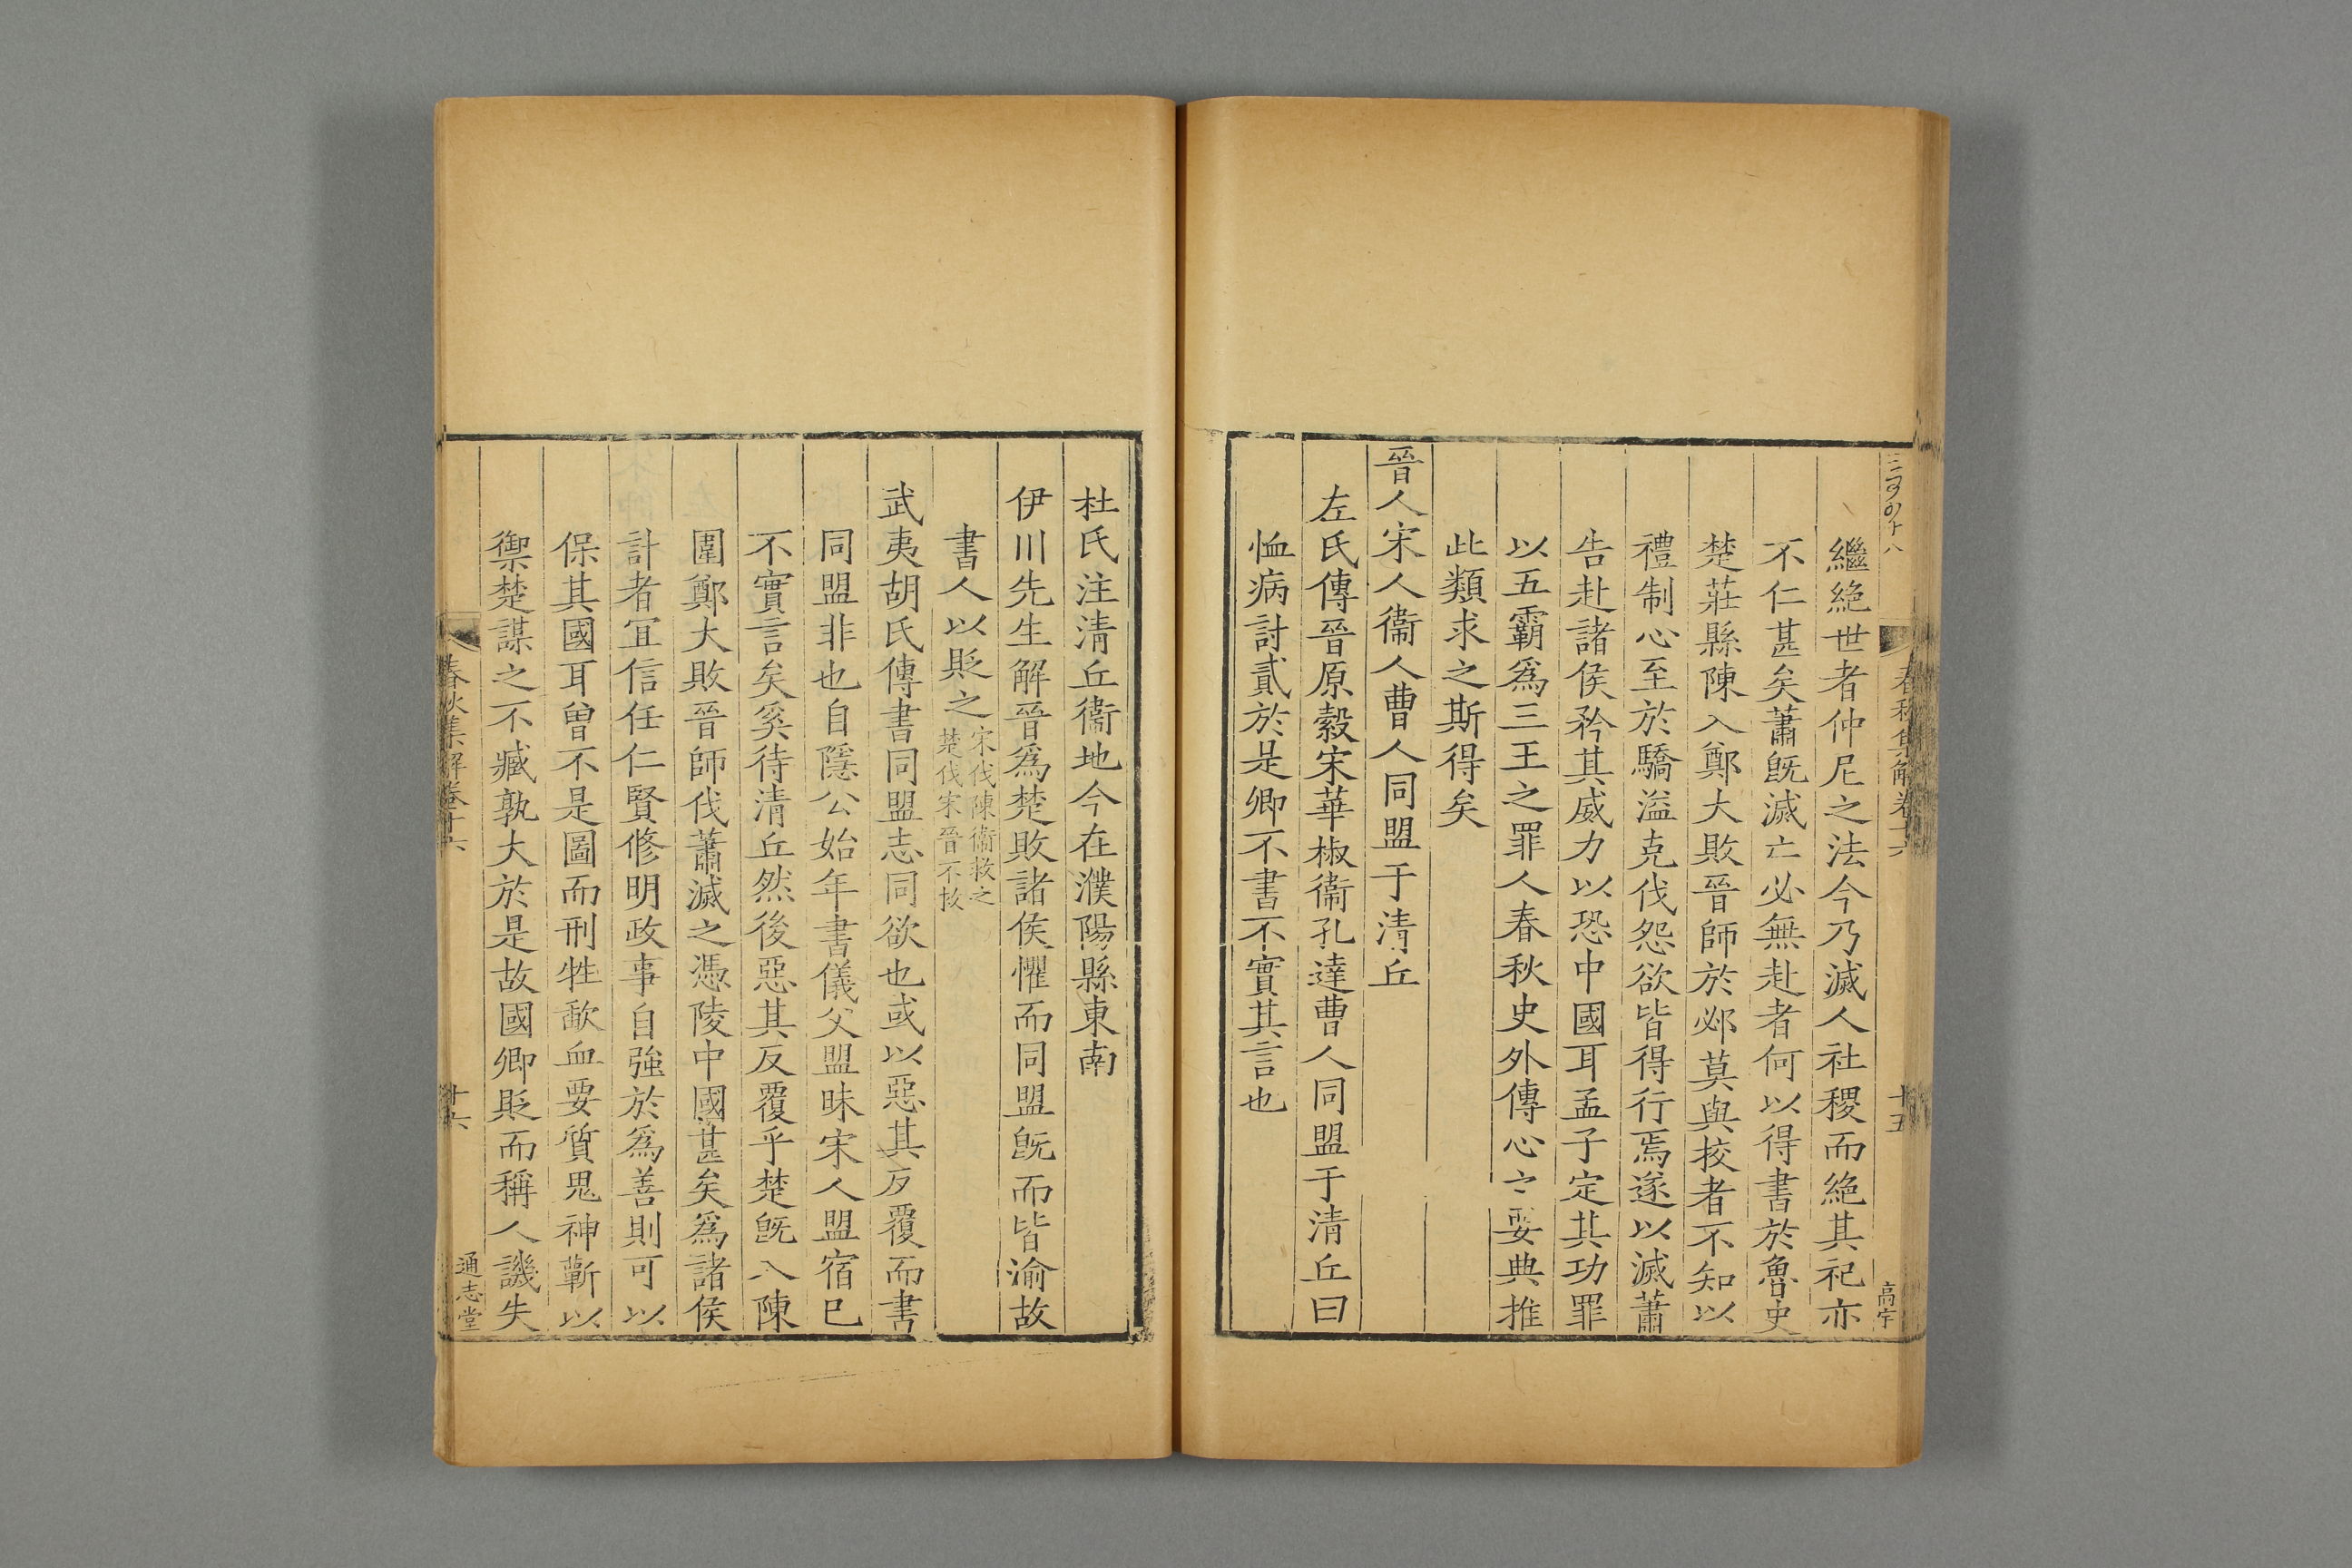 春秋集解卷十六
十五
高宇
繼絶世者仲尼之法今乃滅人社稷而絶其祀亦
不仁甚矣蕭旣滅亡必無赴者何以得書於魯史
楚莊縣陳入鄭大敗晉師於邲莫與挍者不知以
禮制心至於驕溢克伐怨欲皆得行焉遂以滅蕭
告赴諸侯矜其威力以恐中國耳孟子定其功罪
以五霸爲三王之罪人春秋史外傳心之要典推
此類求之斯得矣
晉人宋人衞人曹人同盟于清丘
左氏傳晉原縠宋華椒衞孔達曹人同盟于清丘曰
恤病討貳於是卿不書不實其言也
杜氏注清丘衞地今在濮陽縣東南
伊川先生解晉爲楚敗諸侯懼而同盟旣而皆渝故
書人以貶之宋伐陳衞救之
楚伐宋晉不救
武夷胡氏傳書同盟志同欲也或以惡其反覆而書
同盟非也自隱公始年書儀父盟昧宋人盟宿已
不實言矣奚待清丘然後惡其反覆乎楚旣入陳
圍鄭大敗晉師伐蕭滅之憑陵中國甚矣爲諸侯
計者宜信任仁賢修明政事自強於爲善則可以
保其國耳曾不是圖而刑牲歃血要質鬼神蘄以
禦楚謀之不臧孰大於是故國卿貶而稱人譏失
春秋集解卷十六
十六
通志堂